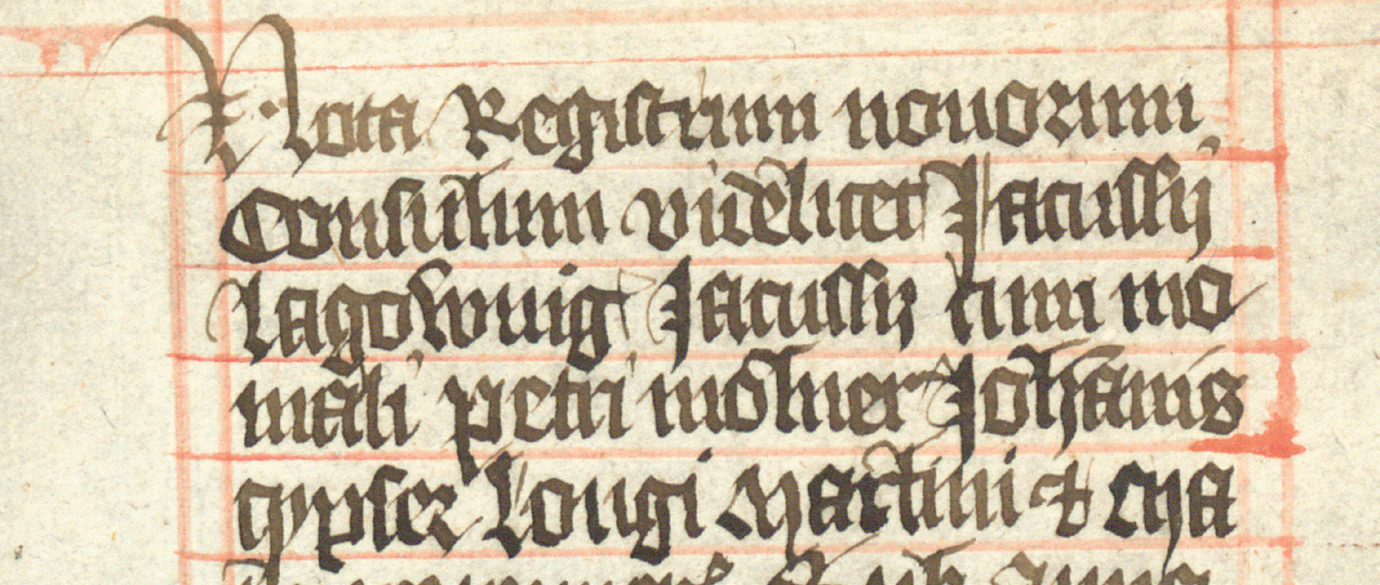 Nota Registrum nouorum
Consulum videlicet Jacussij
Lagownig Jacussij cum mo
nali petri molner Johanis
gypser Longi Martini et